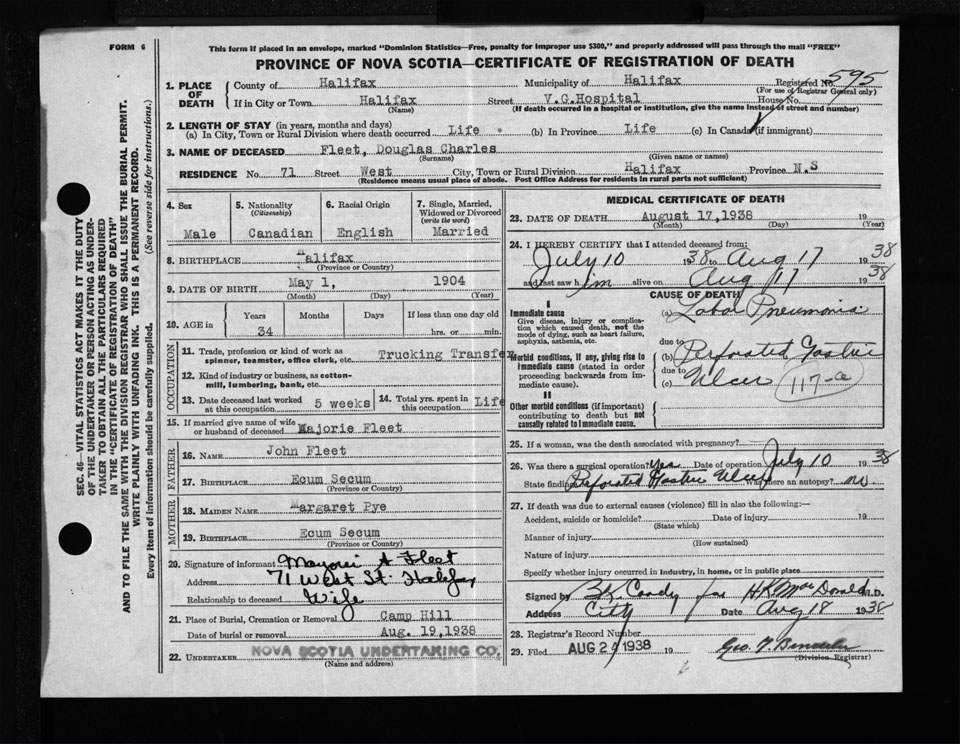 FORM 6
This form if placed in an envelope, marked "Dominion Statistics—Free, penalty for improper use $300," and properly addressed will pass through the mail "FREE"
PROVINCE OF NOVA SCOTIA—CERTIFICATE OF REGISTRATION OF DEATH
SEC. 46—VITAL STATISTICS ACT MAKES IT THE DUTY
OF THE UNDERTAKER OR PERSON ACTING AS UNDER-
TAKER TO OBTAIN ALL THE PARTICULARS REQUIRED
IN THE "CERTIFICATE OF REGISTRATION OF DEATH"
AND TO FILE THE SAME WITH THE DIVISION REGISTRAR WHO SHALL ISSUE THE BURIAL PERMIT.
WRITE PLAINLY WITH UNFADING INK. THIS IS A PERMANENT RECORD.
Every item of information should be carefully supplied. (See reverse side for instructions.)
1. PLACE OF DEATH County of Halifax Municipality of Halifax Registered No. 595
(For use of Registrar General only)
If in City or Town Halifax Street V.G.Hospital House No.
(Name) (If death occurred in a hospital or institution, give the name instead of street and number)
2. LENGTH OF STAY (in years, months and days)
(a) In City, Town or Rural Division where death occurred Life (b) In Province Life (c) In Canada (if immigrant)
3. NAME OF DECEASED Fleet, Douglas Charles
(Surname) (Given name or names)
RESIDENCE No. 71 Street West City, Town or Rural Division Halifax Province N.S
(Residence means usual place of abode. Post Office Address for residents in rural parts not sufficient)
4. Sex Male
5. Nationality (Citizenship) Canadian
6. Racial Origin English
7. Single, Married, Widowed or Divorced (write the word) Married
8. BIRTHPLACE Halifax
(Province or Country)
9. DATE OF BIRTH May 1, 1904
(Month) (Day) (Year)
10. AGE in Years Months Days If less than one day old
34 hrs. or min.
OCCUPATION
11. Trade, profession or kind of work as spinner, teamster, office clerk, etc. Trucking Transfer
12. Kind of industry or business, as cotton-mill, lumbering, bank, etc.
13. Date deceased last worked at this occupation 5 weeks
14. Total yrs. spent in this occupation Life
15. If married give name of wife or husband of deceased Majorie Fleet
FATHER
16. NAME John Fleet
17. BIRTHPLACE Ecum Secum
(Province or Country)
MOTHER
18. MAIDEN NAME Margaret Pye
19. BIRTHPLACE Ecum Secum
(Province or Country)
20. Signature of informant Marjorie A Fleet
Address 71 West St. Halifax
Relationship to deceased Wife
21. Place of Burial, Cremation or Removal Camp Hill
Date of burial or removal Aug. 19, 1938
22. UNDERTAKER NOVA SCOTIA UNDERTAKING CO.
(Name and address)
MEDICAL CERTIFICATE OF DEATH
23. DATE OF DEATH August 17, 1938 19
(Month) (Day) (Year)
24. I HEREBY CERTIFY that I attended deceased from:
July 10 1938 to Aug 17 1938
and last saw him alive on Aug 17 1938
CAUSE OF DEATH
I
Immediate cause
Give disease, injury or complication which caused death, not the mode of dying, such as heart failure, asphyxia, asthenia, etc.
(a) Lobar Pneumonia
due to
Morbid conditions, if any, giving rise to immediate cause (stated in order proceeding backwards from immediate cause).
(b) Perforated Gastric
due to
(c) Ulcer 117-a
II
Other morbid conditions (if important) contributing to death but not causally related to immediate cause.
25. If a woman, was the death associated with pregnancy?
26. Was there a surgical operation? Yes Date of operation July 10 1938
State findings Perforated Gastric Ulcer Was there an autopsy? no
27. If death was due to external causes (violence) fill in also the following:—
Accident, suicide or homicide? Date of injury 19
(State which)
Manner of injury
(How sustained)
Nature of injury
Specify whether injury occurred in industry, in home, or in public place
Signed by Coady for H K MacDonald M.D.
Address City Date Aug 18 1938
28. Registrar's Record Number
29. Filed AUG 24 1938 19
(Division Registrar)